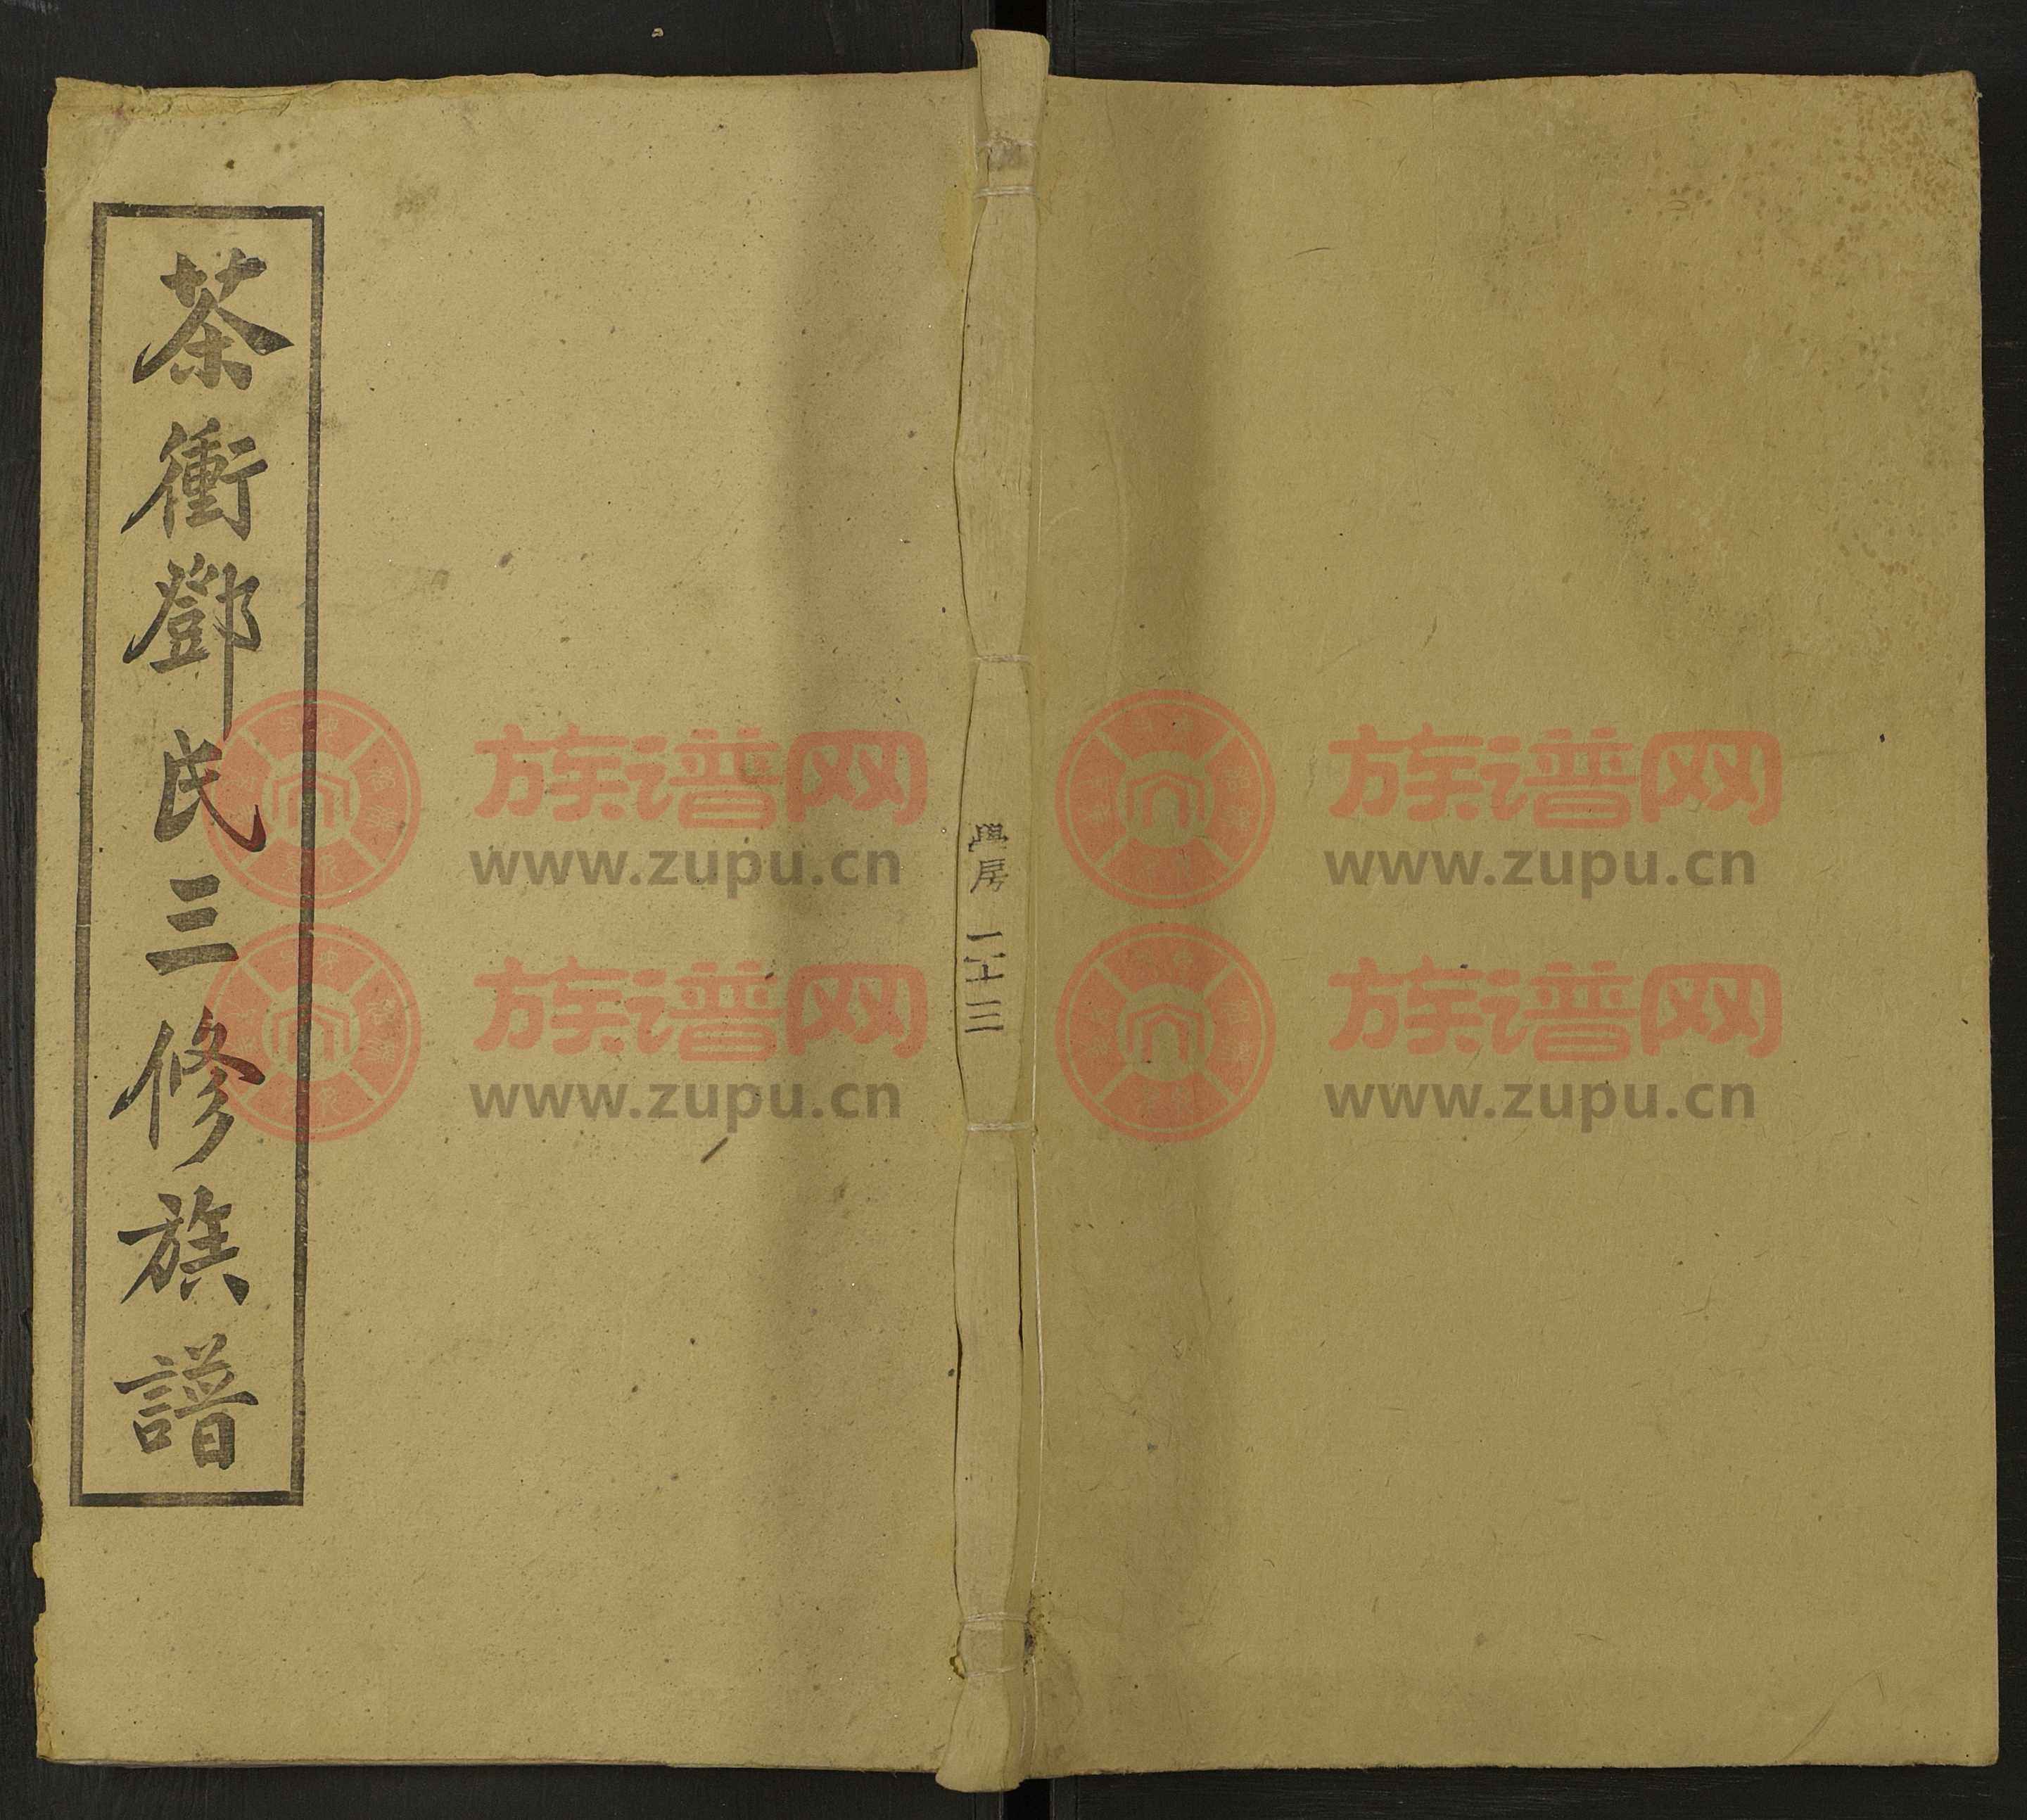 茶衝鄧氏三修族譜
族谱网
www.zupu.cn
族谱网
www.zupu.cn
房 二十三
族谱网
www.zupu.cn
族谱网
www.zupu.cn